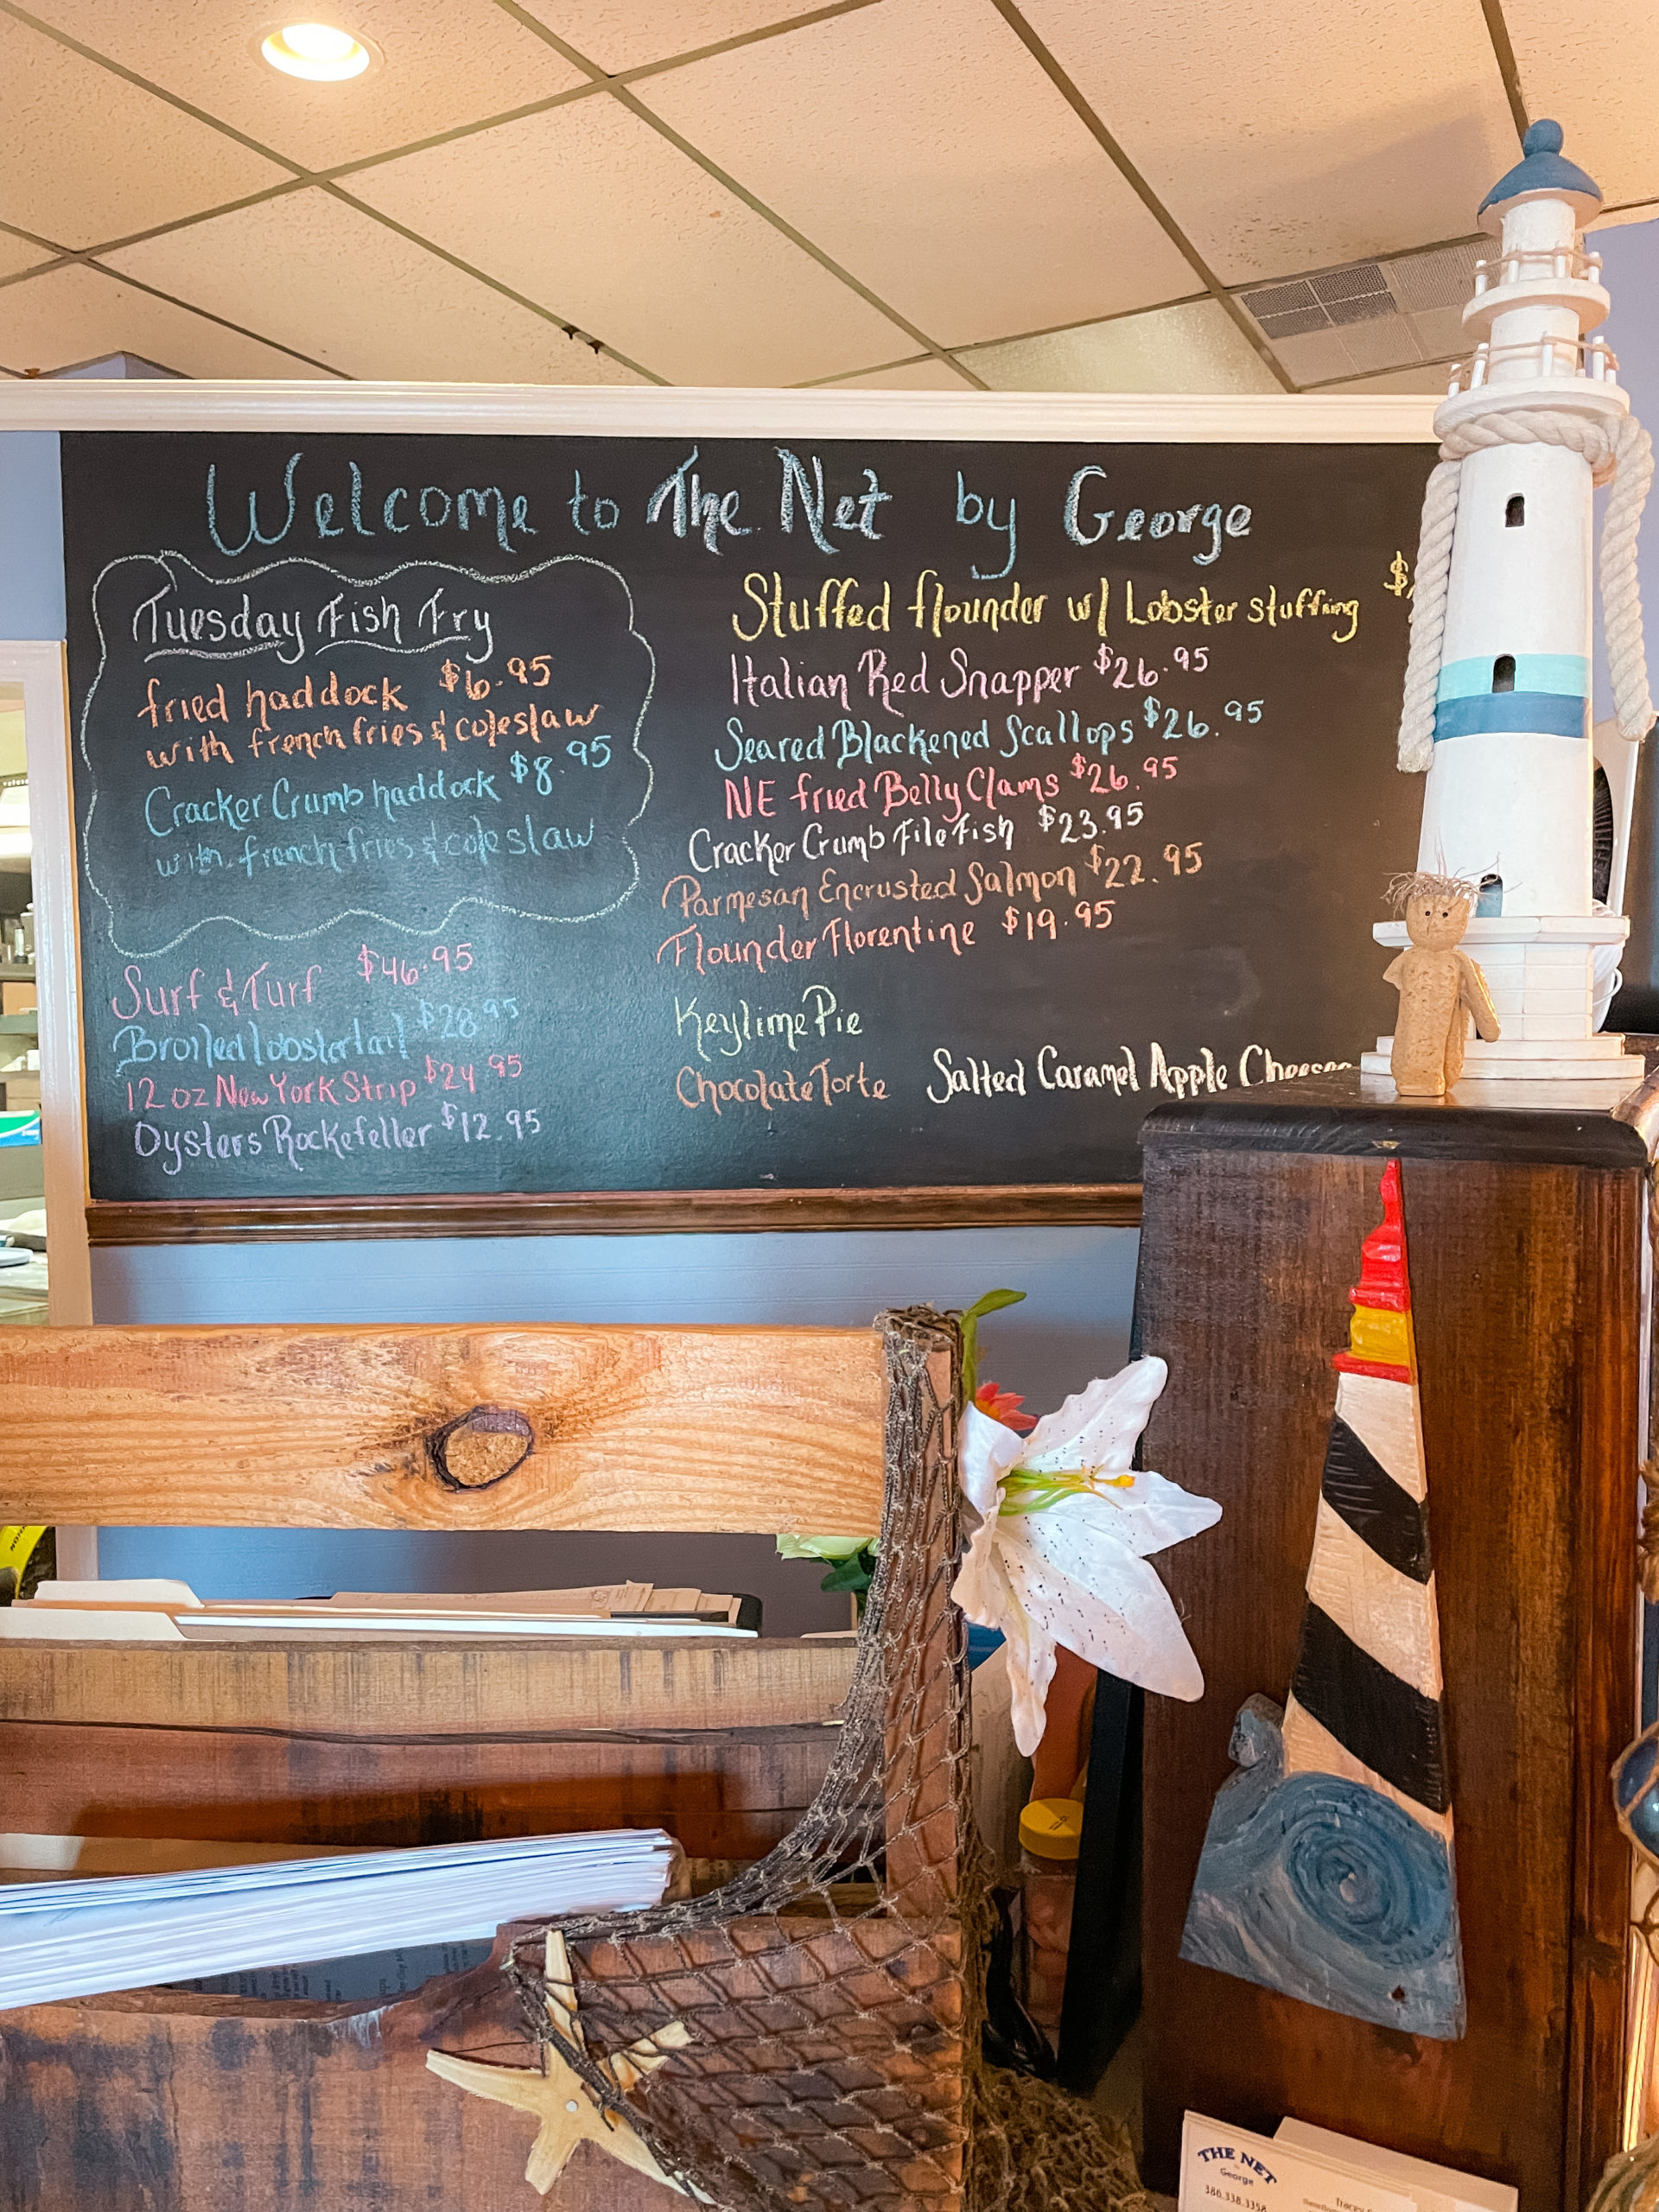 Welcome to The Net by George
Tuesday Fish Fry
fried haddock $6.95
with french fries & coleslaw
Cracker Crumb haddock $8.95
with french fries & coleslaw
Surf & Turf $46.95
Broiled lobstertail $28.95
12 oz New York Strip $24.95
Oysters Rockefeller $12.95
Stuffed flounder w/ Lobster stuffing $
Italian Red Snapper $26.95
Seared Blackened Scallops $26.95
NE fried Belly Clams $26.95
Cracker Crumb File Fish $23.95
Parmesan Encrusted Salmon $22.95
Flounder Florentine $19.95
Keylime Pie
Chocolate Torte
Salted Caramel Apple Cheese
THE NET
George
386.338.3358
Tracey